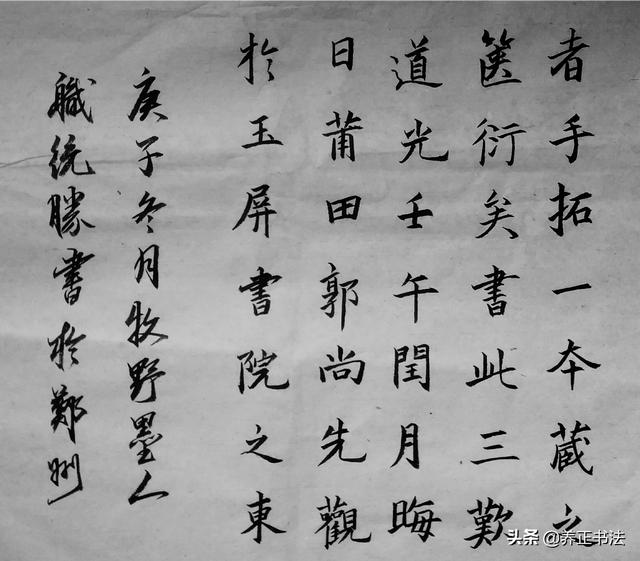 者手拓一本蔵之
箧衍矣書此三歎
道光壬午閏月晦
日莆田郭尚先觀
於玉屏書院之東
庚子冬月牧野墨人
職統勝書於鄭州
头条 @养正书法